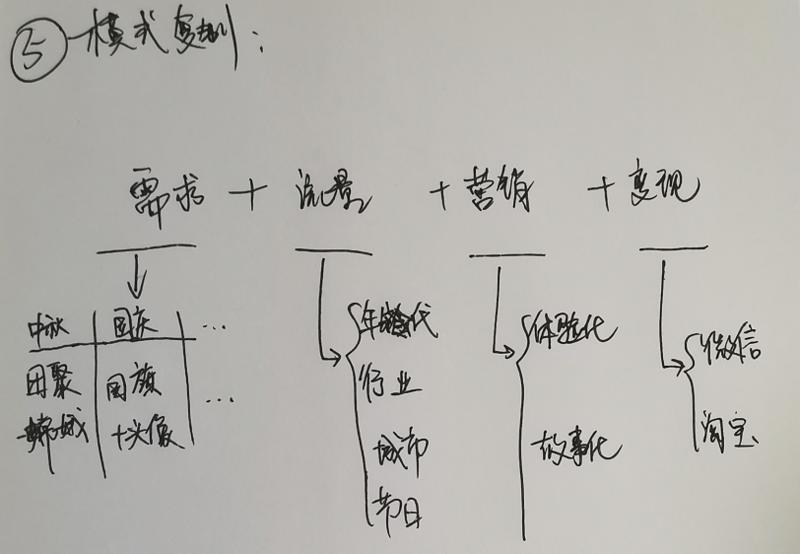 ⑤ 模式复制：
需求 + 流量 + 营销 + 变现
中秋 国庆 ...
团聚 国旗 ...
嫦娥 +头像
年龄代
行业
城市
节日
体验化
故事化
微信
淘宝